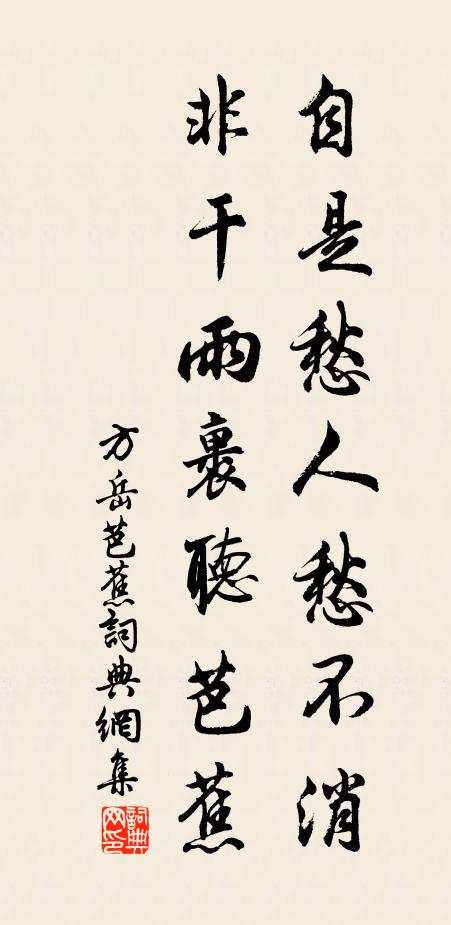 自是愁人愁不消
非干雨裏聽芭蕉
方岳芭蕉詞典網集
詞典网印